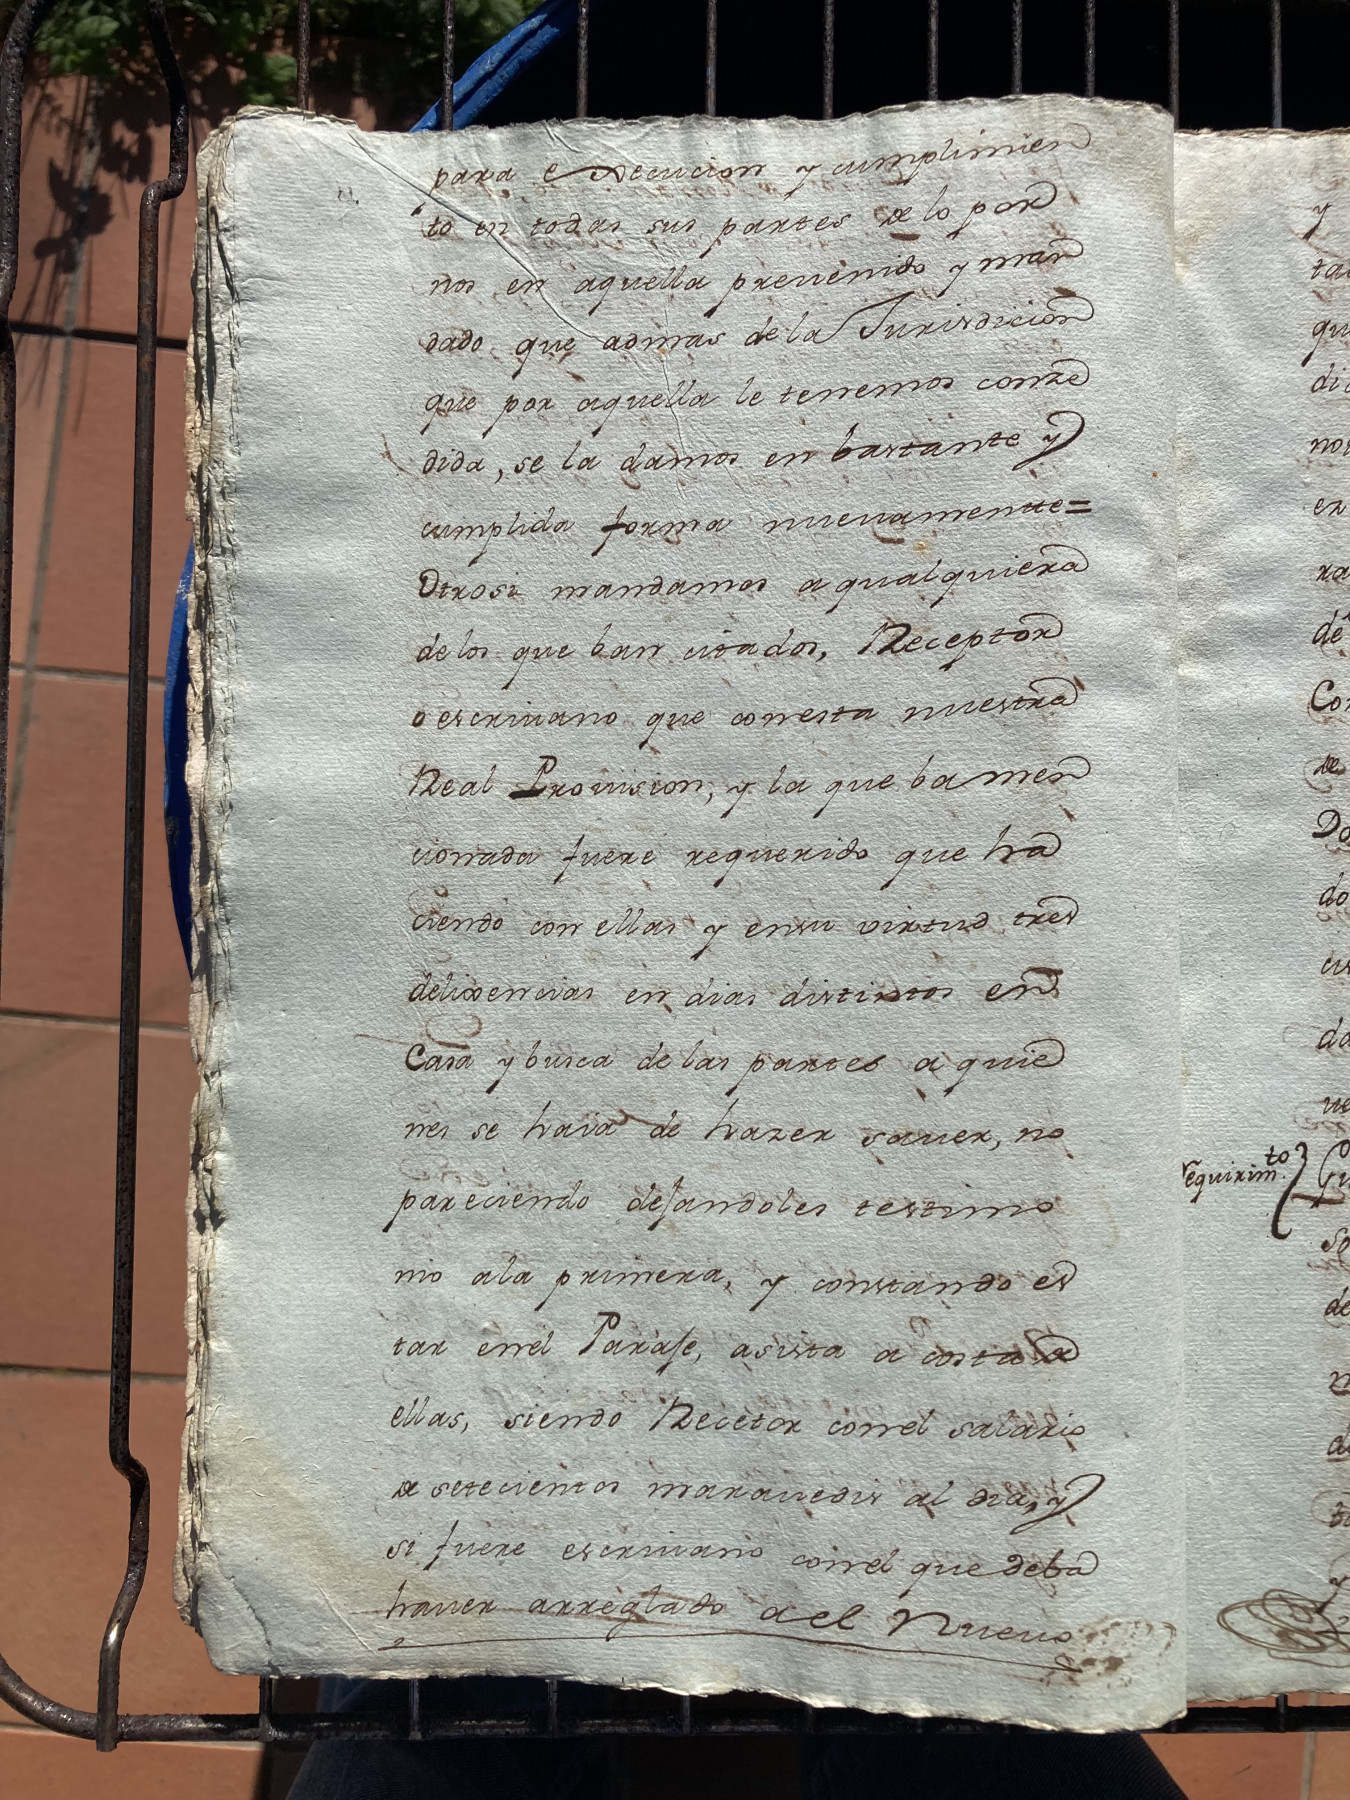 para execucion y cumplimien
to en todas sus partes de lo por
nos en aquella preuenido y man
dado que admas de la Jurisdicion
que por aquella le tenemos conze
dida, se la damos en bastante y
cumplida forma nueuamente =
Otrosi mandamos a qualquiera
de los que ban citados, Receptor
o escriuano que con esta nuestra
Real Prouision, y la que ba men
cionada fuere requerido que ha
ciendo con ellas y en su virtud tres
delixencias en dias distintos en
Casa y busca de las partes a quie
nes se haia de hazer sauer, no
pareciendo dejandoles testimo
nio a la primera, y constando es
tar en el Paraje, asista a costa de
ellas, siendo Recetor con el salario
de setecientos marauedis al dia, y
si fuere escriuano con el que deba
hauer arreglado a el Nueuo
requirim.to